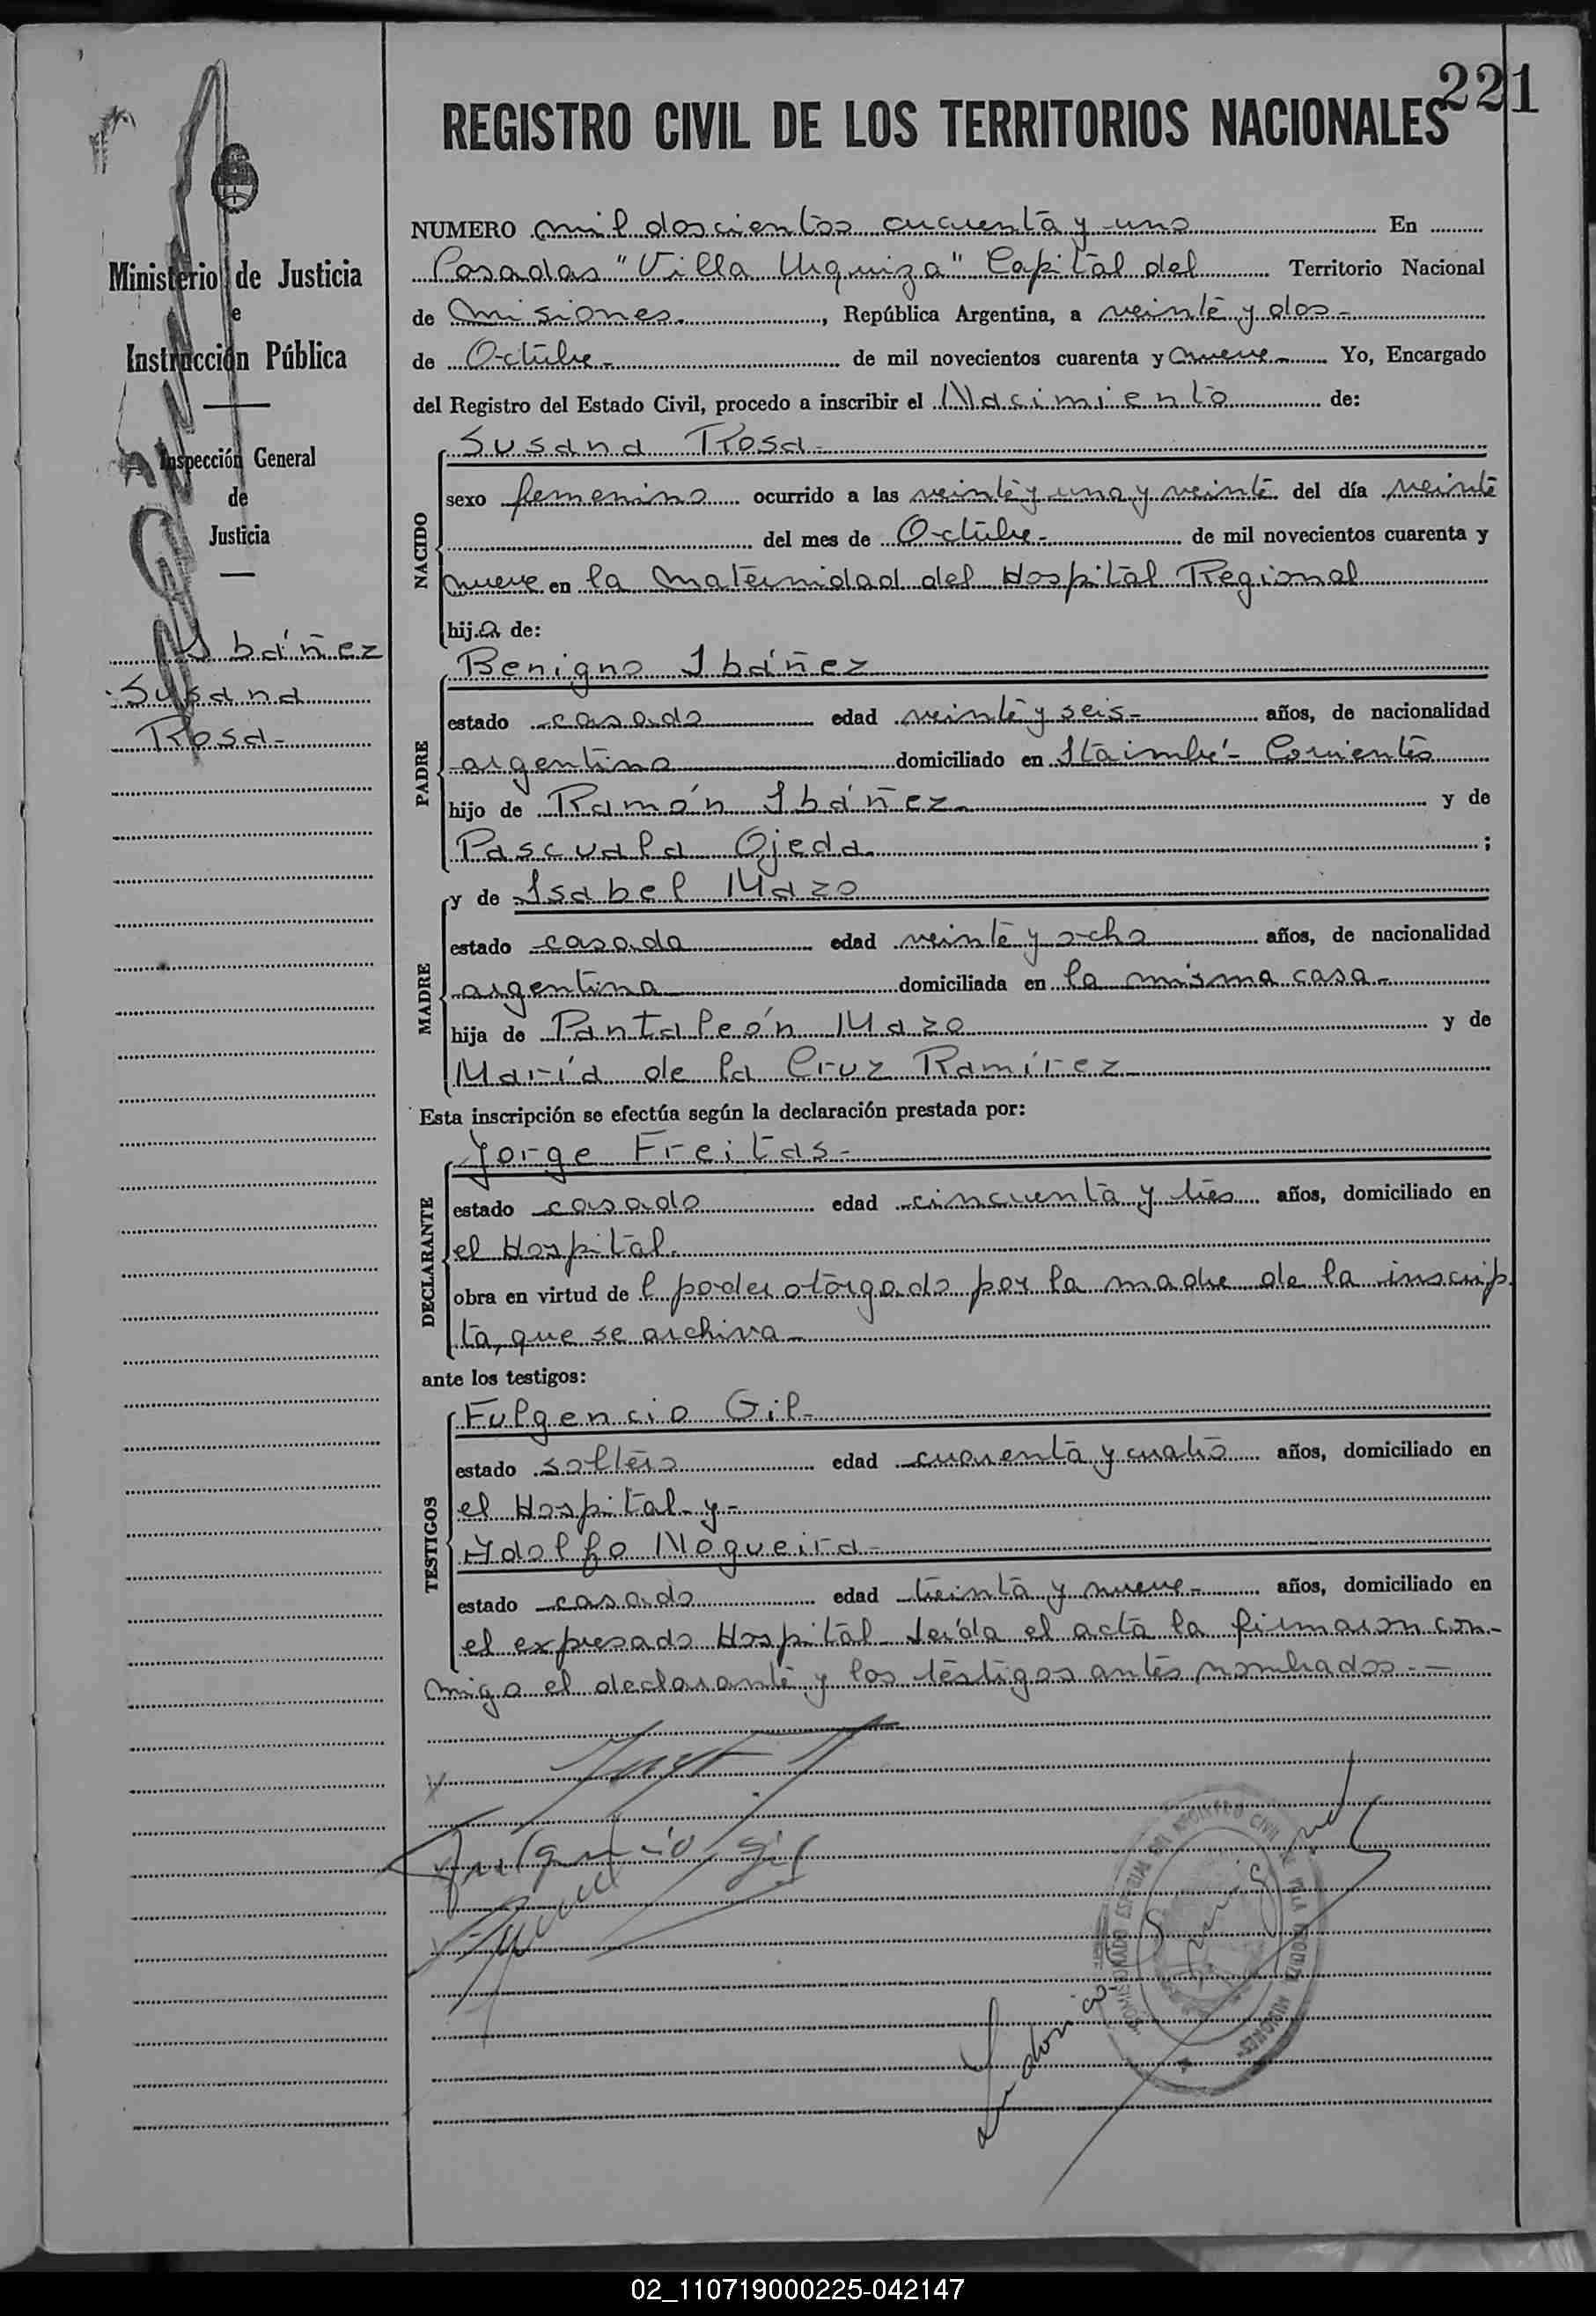 221
REGISTRO CIVIL DE LOS TERRITORIOS NACIONALES
Ministerio de Justicia
e
Instrucción Pública
Inspección General
de
Justicia
Ibáñez
Susana
Rosa-
NUMERO mil doscientos cincuenta y uno En
Posadas "Villa Urquiza" Capital del Territorio Nacional
de Misiones, República Argentina, a veinte y dos-
de Octubre- de mil novecientos cuarenta y nueve- Yo, Encargado
del Registro del Estado Civil, procedo a inscribir el Nacimiento de:
Susana Rosa-
NACIDO
sexo femenino ocurrido a las veinte y una y veinte del día veinte
del mes de Octubre- de mil novecientos cuarenta y
nueve en la Maternidad del Hospital Regional
hija de:
PADRE
Benigno Ibáñez
estado casado edad veinte y seis- años, de nacionalidad
argentino domiciliado en Itaimbé- Corrientes
hijo de Ramón Ibáñez y de
Pascuala Ojeda ;
MADRE
y de Isabel Mazo
estado casada edad veinte y ocho años, de nacionalidad
argentina domiciliada en la misma casa-
hija de Pantaleón Mazo y de
María de la Cruz Ramírez
Esta inscripción se efectúa según la declaración prestada por:
DECLARANTE
Jorge Freitas-
estado casado edad cincuenta y tres años, domiciliado en
el Hospital.
obra en virtud de l poder otorgado por la madre de la inscrip
ta, que se archiva-
ante los testigos:
TESTIGOS
Fulgencio Gil-
estado soltero edad cuarenta y cuatro años, domiciliado en
el Hospital- y-
Adolfo Nogueira-
estado casado edad treinta y nueve- años, domiciliado en
el expresado Hospital- Leída el acta la firmaron con-
migo el declarante y los testigos antes nombrados.-
Fulgencio Gil
REGISTRO CIVIL
MISIONES
02_110719000225-042147